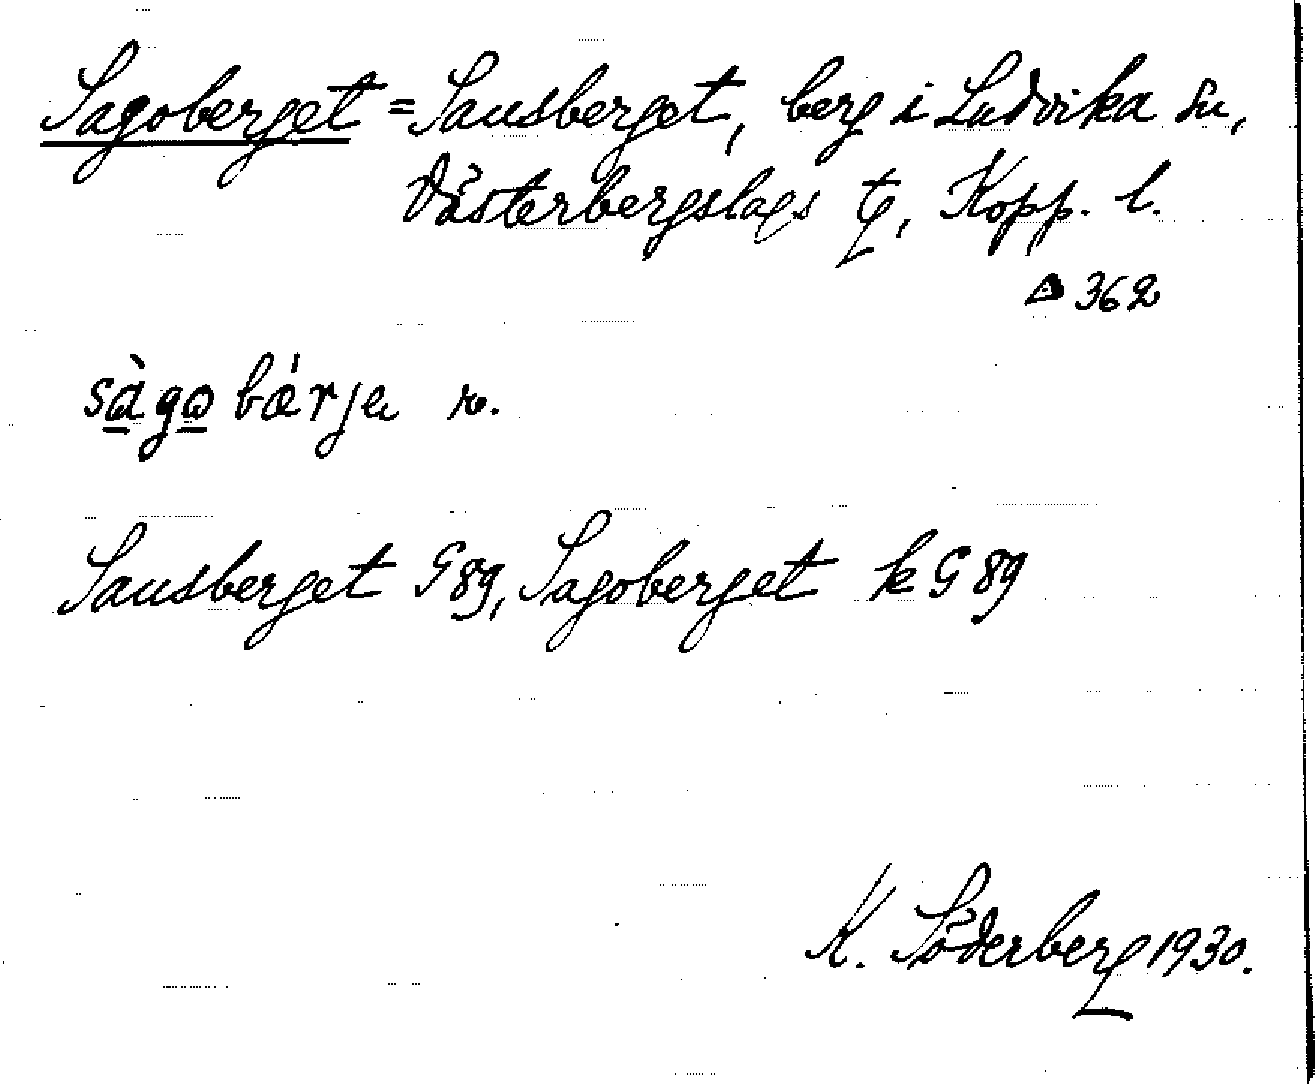 Sagoberget = Sausberget, berg i Ludvika sn,
Västerbergslags tg, Kopp. l.
△ 362
sàgo bǽrje n.
Sausberget G 89, Sagoberget k G 89
K. Söderberg 1930.